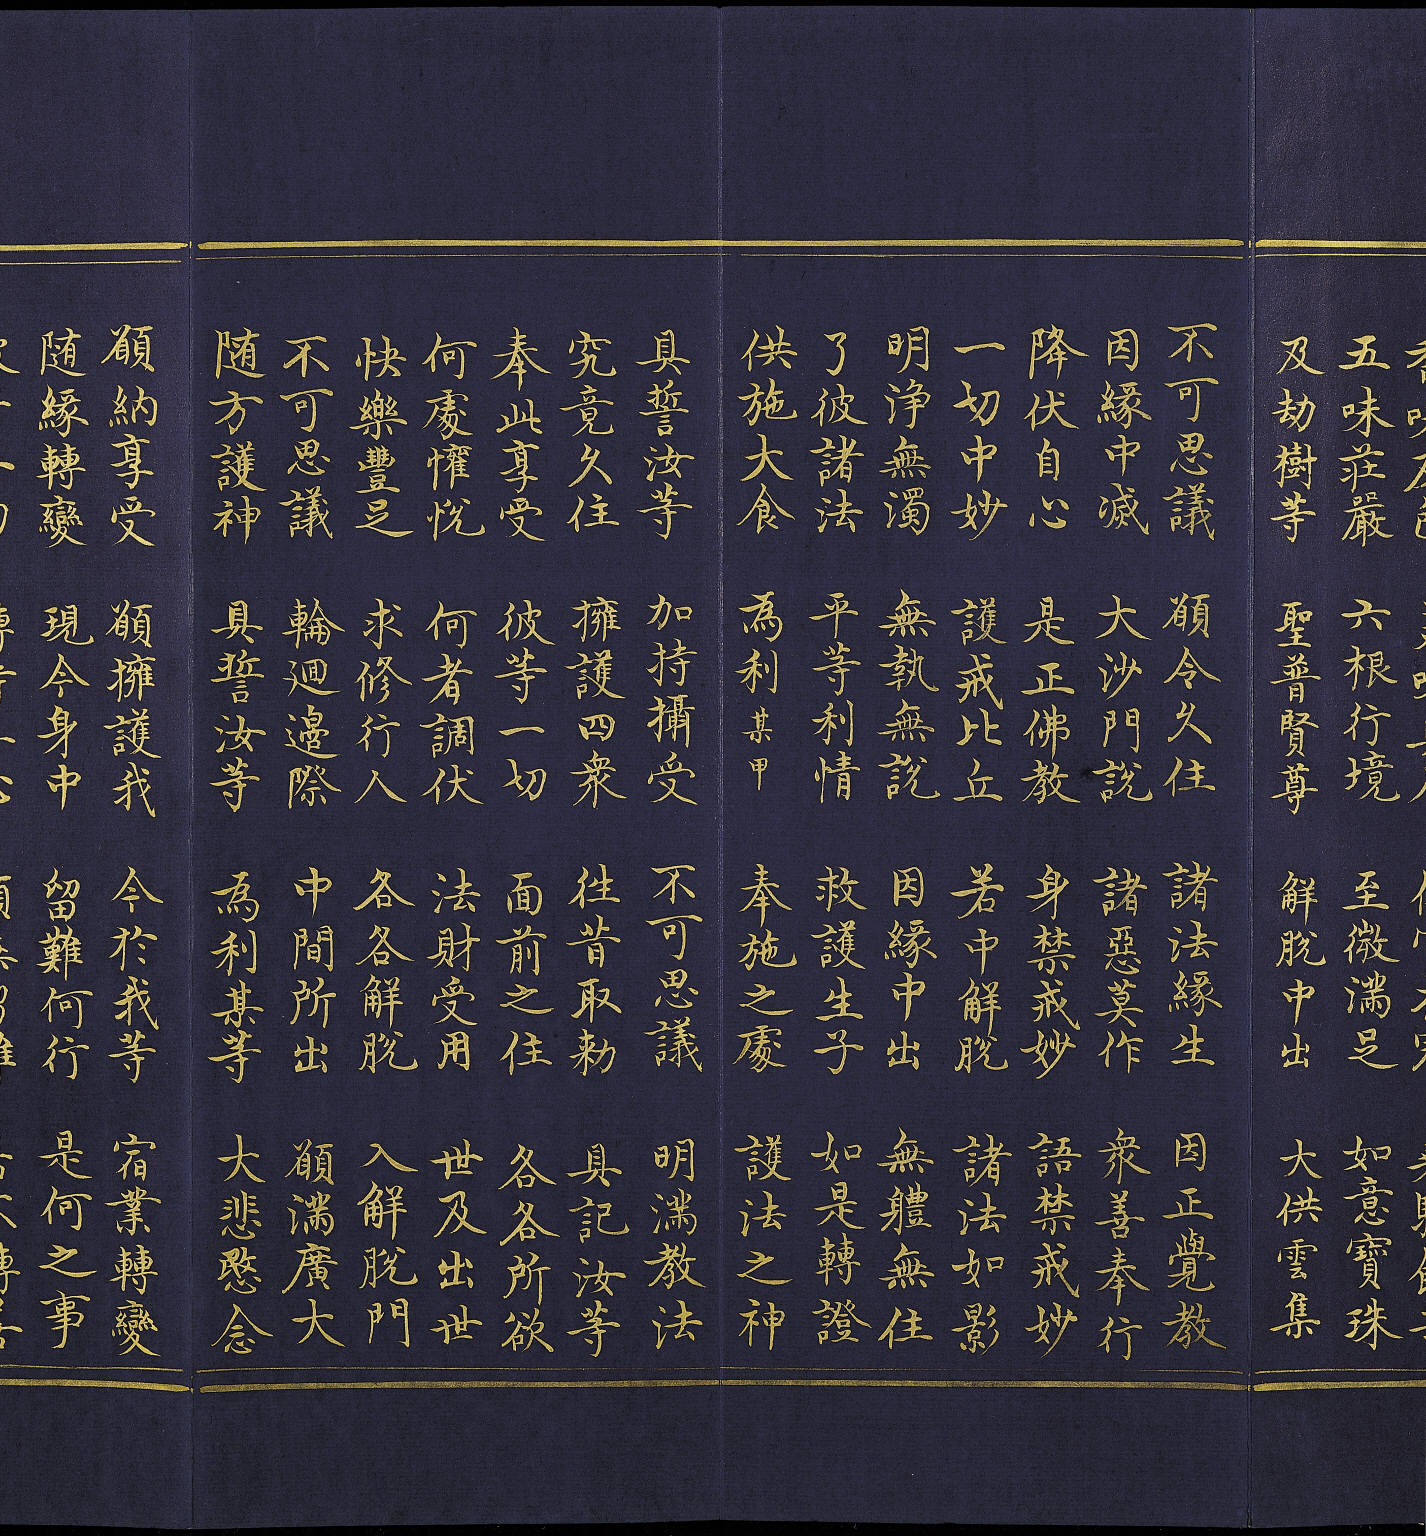 五味莊嚴 六根行境 至微滿足 如意寶珠
及劫樹等 聖普賢尊 解脫中出 大供雲集
不可思議 願令久住 諸法緣生 因正覺教
因緣中滅 大沙門說 諸惡莫作 衆善奉行
降伏自心 是正佛教 身禁戒妙 語禁戒妙
一切中妙 護戒比丘 若中解脫 諸法如影
明淨無濁 無執無說 因緣中出 無軆無住
了彼諸法 平等利情 救護生子 如是轉證
供施大食 為利某甲 奉施之處 護法之神
具誓汝等 加持攝受 不可思議 明滿教法
究竟久住 擁護四衆 徃昔取勑 具記汝等
奉此享受 彼等一切 面前之住 各各所欲
何處懽悅 何者調伏 法財受用 世及出世
快樂豐足 求修行人 各各解脫 入解脫門
不可思議 輪迴邊際 中間所出 願滿廣大
随方護神 具誓汝等 為利某等 大悲愍念
願納享受 願擁護我 今於我等 宿業轉變
随緣轉變 現今身中 留難何行 是何之事